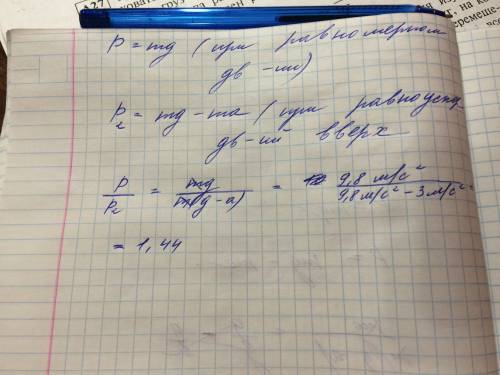 P = mg (при равномерном
дв-ии)
P₂ = mg - ma (при равноуск
дв-ии вверх
P/P₂ = mg/m(g-a) = 9,8 м/с²/9,8 м/с² - 3 м/с² =
= 1,44